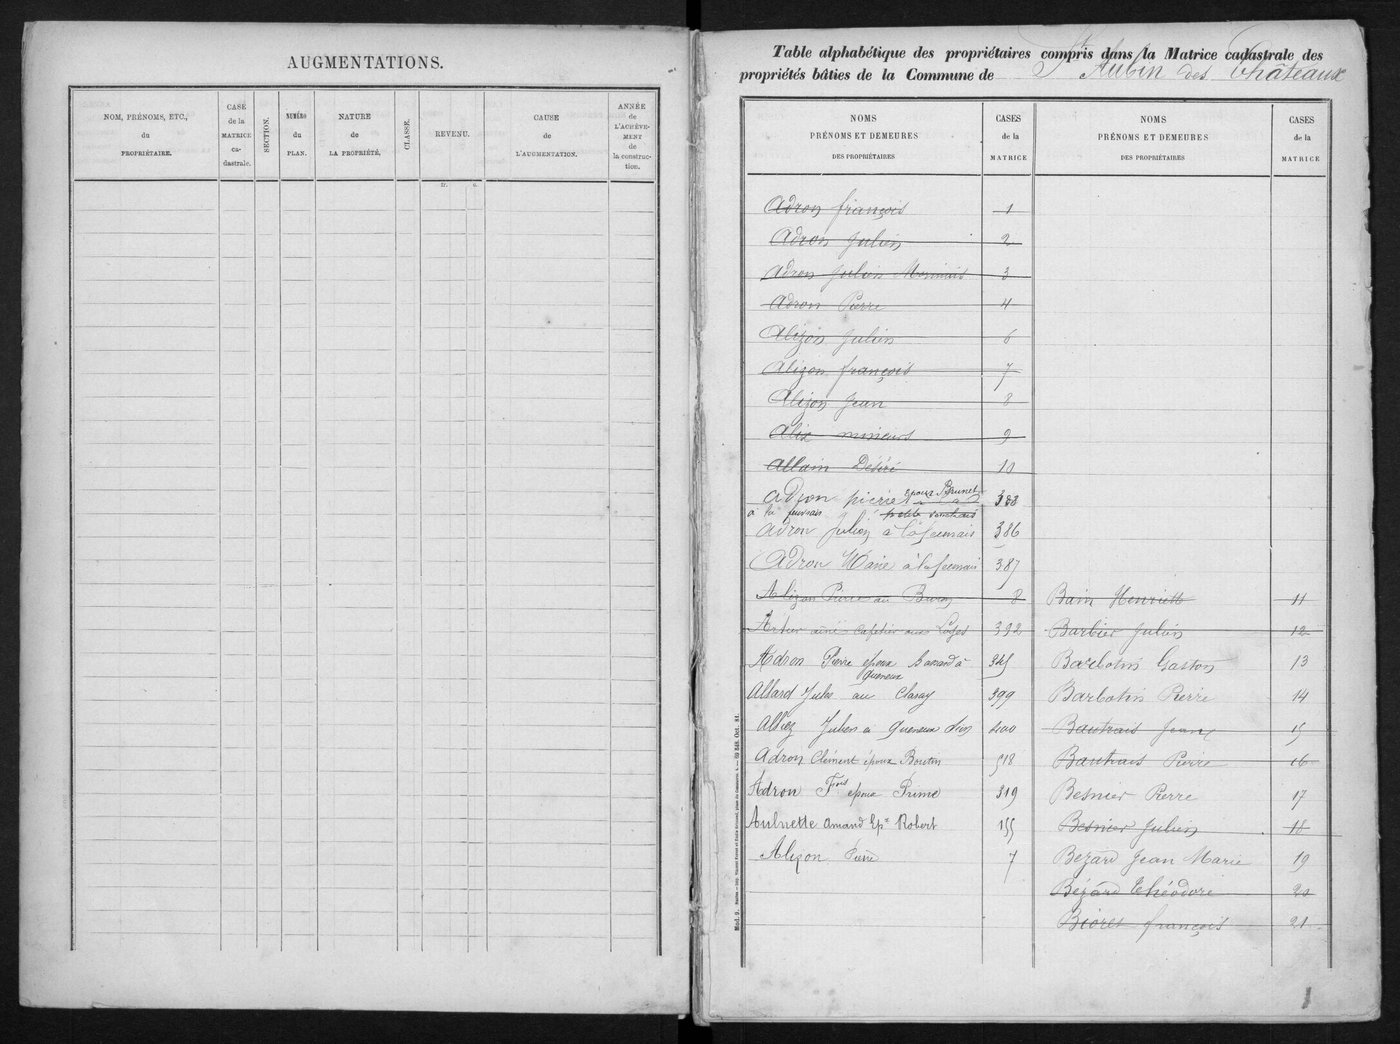 AUGMENTATIONS.
NOM, PRÉNOMS, ETC.,
du
PROPRIÉTAIRE.
CASE
de la
MATRICE
ca-
dastrale.
SECTION.
NUMÉRO
du
PLAN.
NATURE
de
LA PROPRIÉTÉ.
CLASSE.
REVENU.
fr. c.
CAUSE
de
L'AUGMENTATION.
ANNÉE
de
L'ACHÈVE-
MENT
de
la construc-
tion.
Table alphabétique des propriétaires compris dans la Matrice cadastrale des
propriétés bâties de la Commune de St Aubin des Châteaux
NOMS
PRÉNOMS ET DEMEURES
DES PROPRIÉTAIRES
CASES
de la
MATRICE
NOMS
PRÉNOMS ET DEMEURES
DES PROPRIÉTAIRES
CASES
de la
MATRICE
Adron françois 1
Adron Julien 2
Adron Julien 3
Adron Pierre 4
Alizon Julien 6
Alizon françois 7
Alizon Jean 8
Alix mineurs 9
Allain Désiré 10
Adron pierre époux Brunet 388
à la
Adron Julien à la 386
Adron Marie à la 387
Alizon Pierre au Buron 8
Artur aîné cafetier aux Loges 392
Adron Pierre époux à
Allard Jules au 399
Julien à 400
Adron Clément époux Boutin 518
Adron Fçois époux Prime 319
Aulnette Amand Ep. Robert 155
Alizon Pierre 7
Bain Henriette 11
Barbier Julien 12
Barbotin Gaston 13
Barbotin Pierre 14
Bautrais Jean 15
Bautrais Pierre 16
Besnier Pierre 17
Besnier Julien 18
Bézard Jean Marie 19
Bézard Théodore 20
Bioret françois 21
1